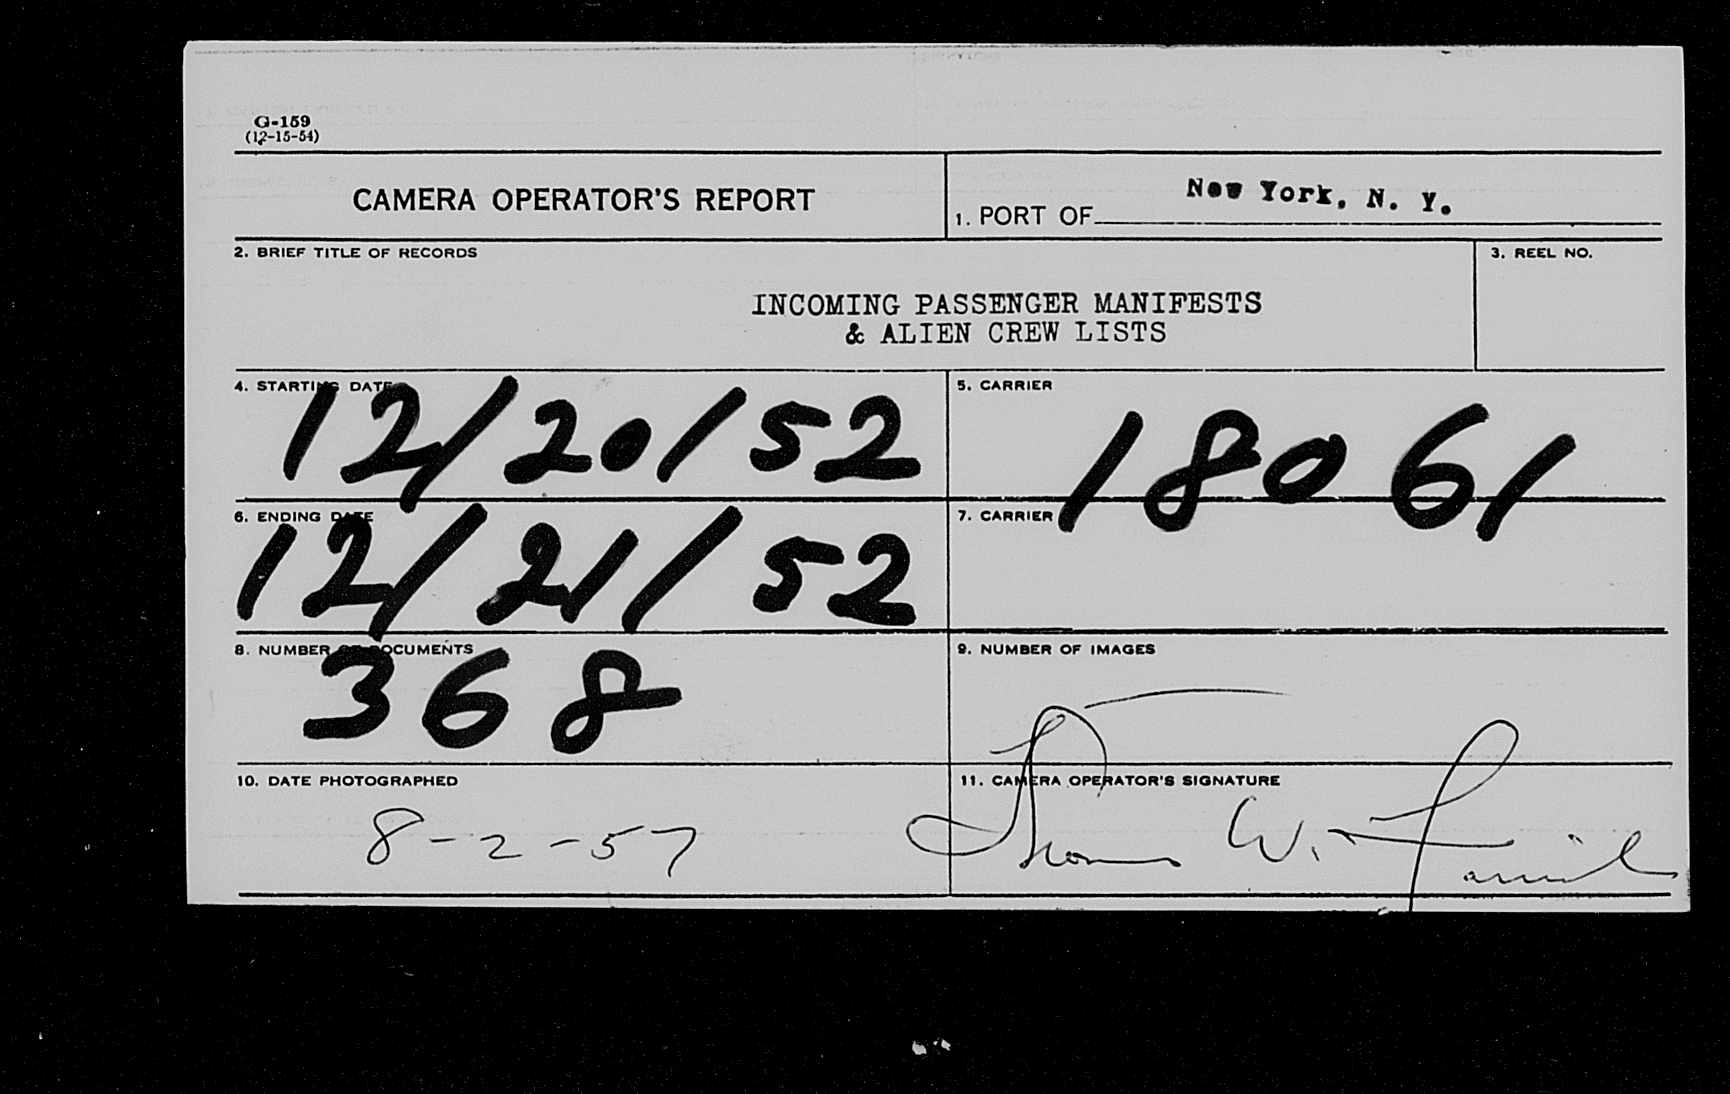 G-159
(12-15-54)
CAMERA OPERATOR'S REPORT
1. PORT OF New York, N. Y.
2. BRIEF TITLE OF RECORDS
3. REEL NO.
INCOMING PASSENGER MANIFESTS
& ALIEN CREW LISTS
4. STARTING DATE
12/20/52
5. CARRIER
18061
6. ENDING DATE
12/21/52
7. CARRIER
8. NUMBER OF DOCUMENTS
368
9. NUMBER OF IMAGES
10. DATE PHOTOGRAPHED
8-2-57
11. CAMERA OPERATOR'S SIGNATURE
Thomas W.